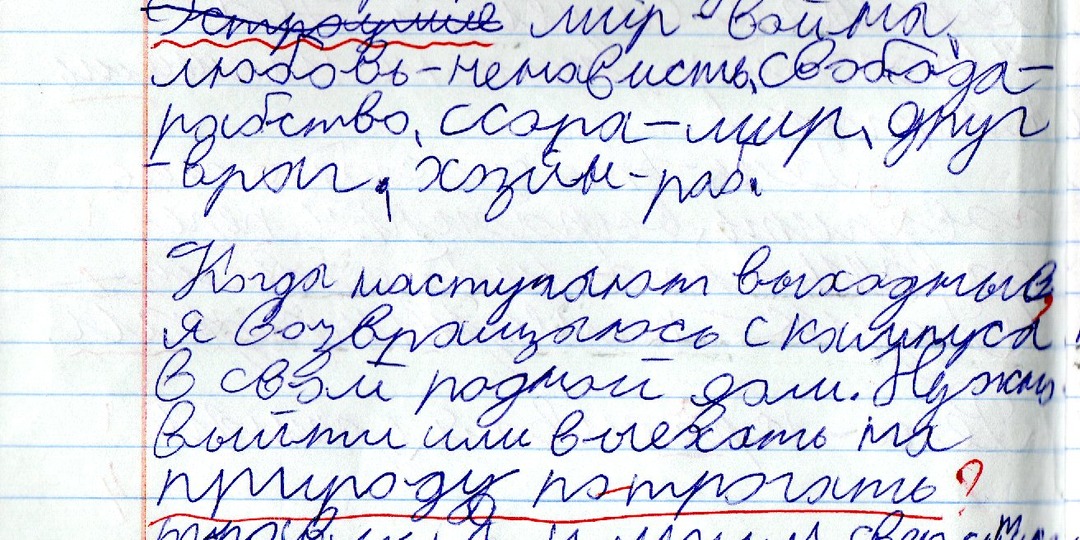 мир - война,
любовь-ненависть, свобода-
рабство, ссора-мир, друг
-враг, хозяин-раб.
Когда наступают выходные,
я возвращаюсь с кампуса
в свой родной дом. Нужно
выйти или выехать на
природу потрогать?